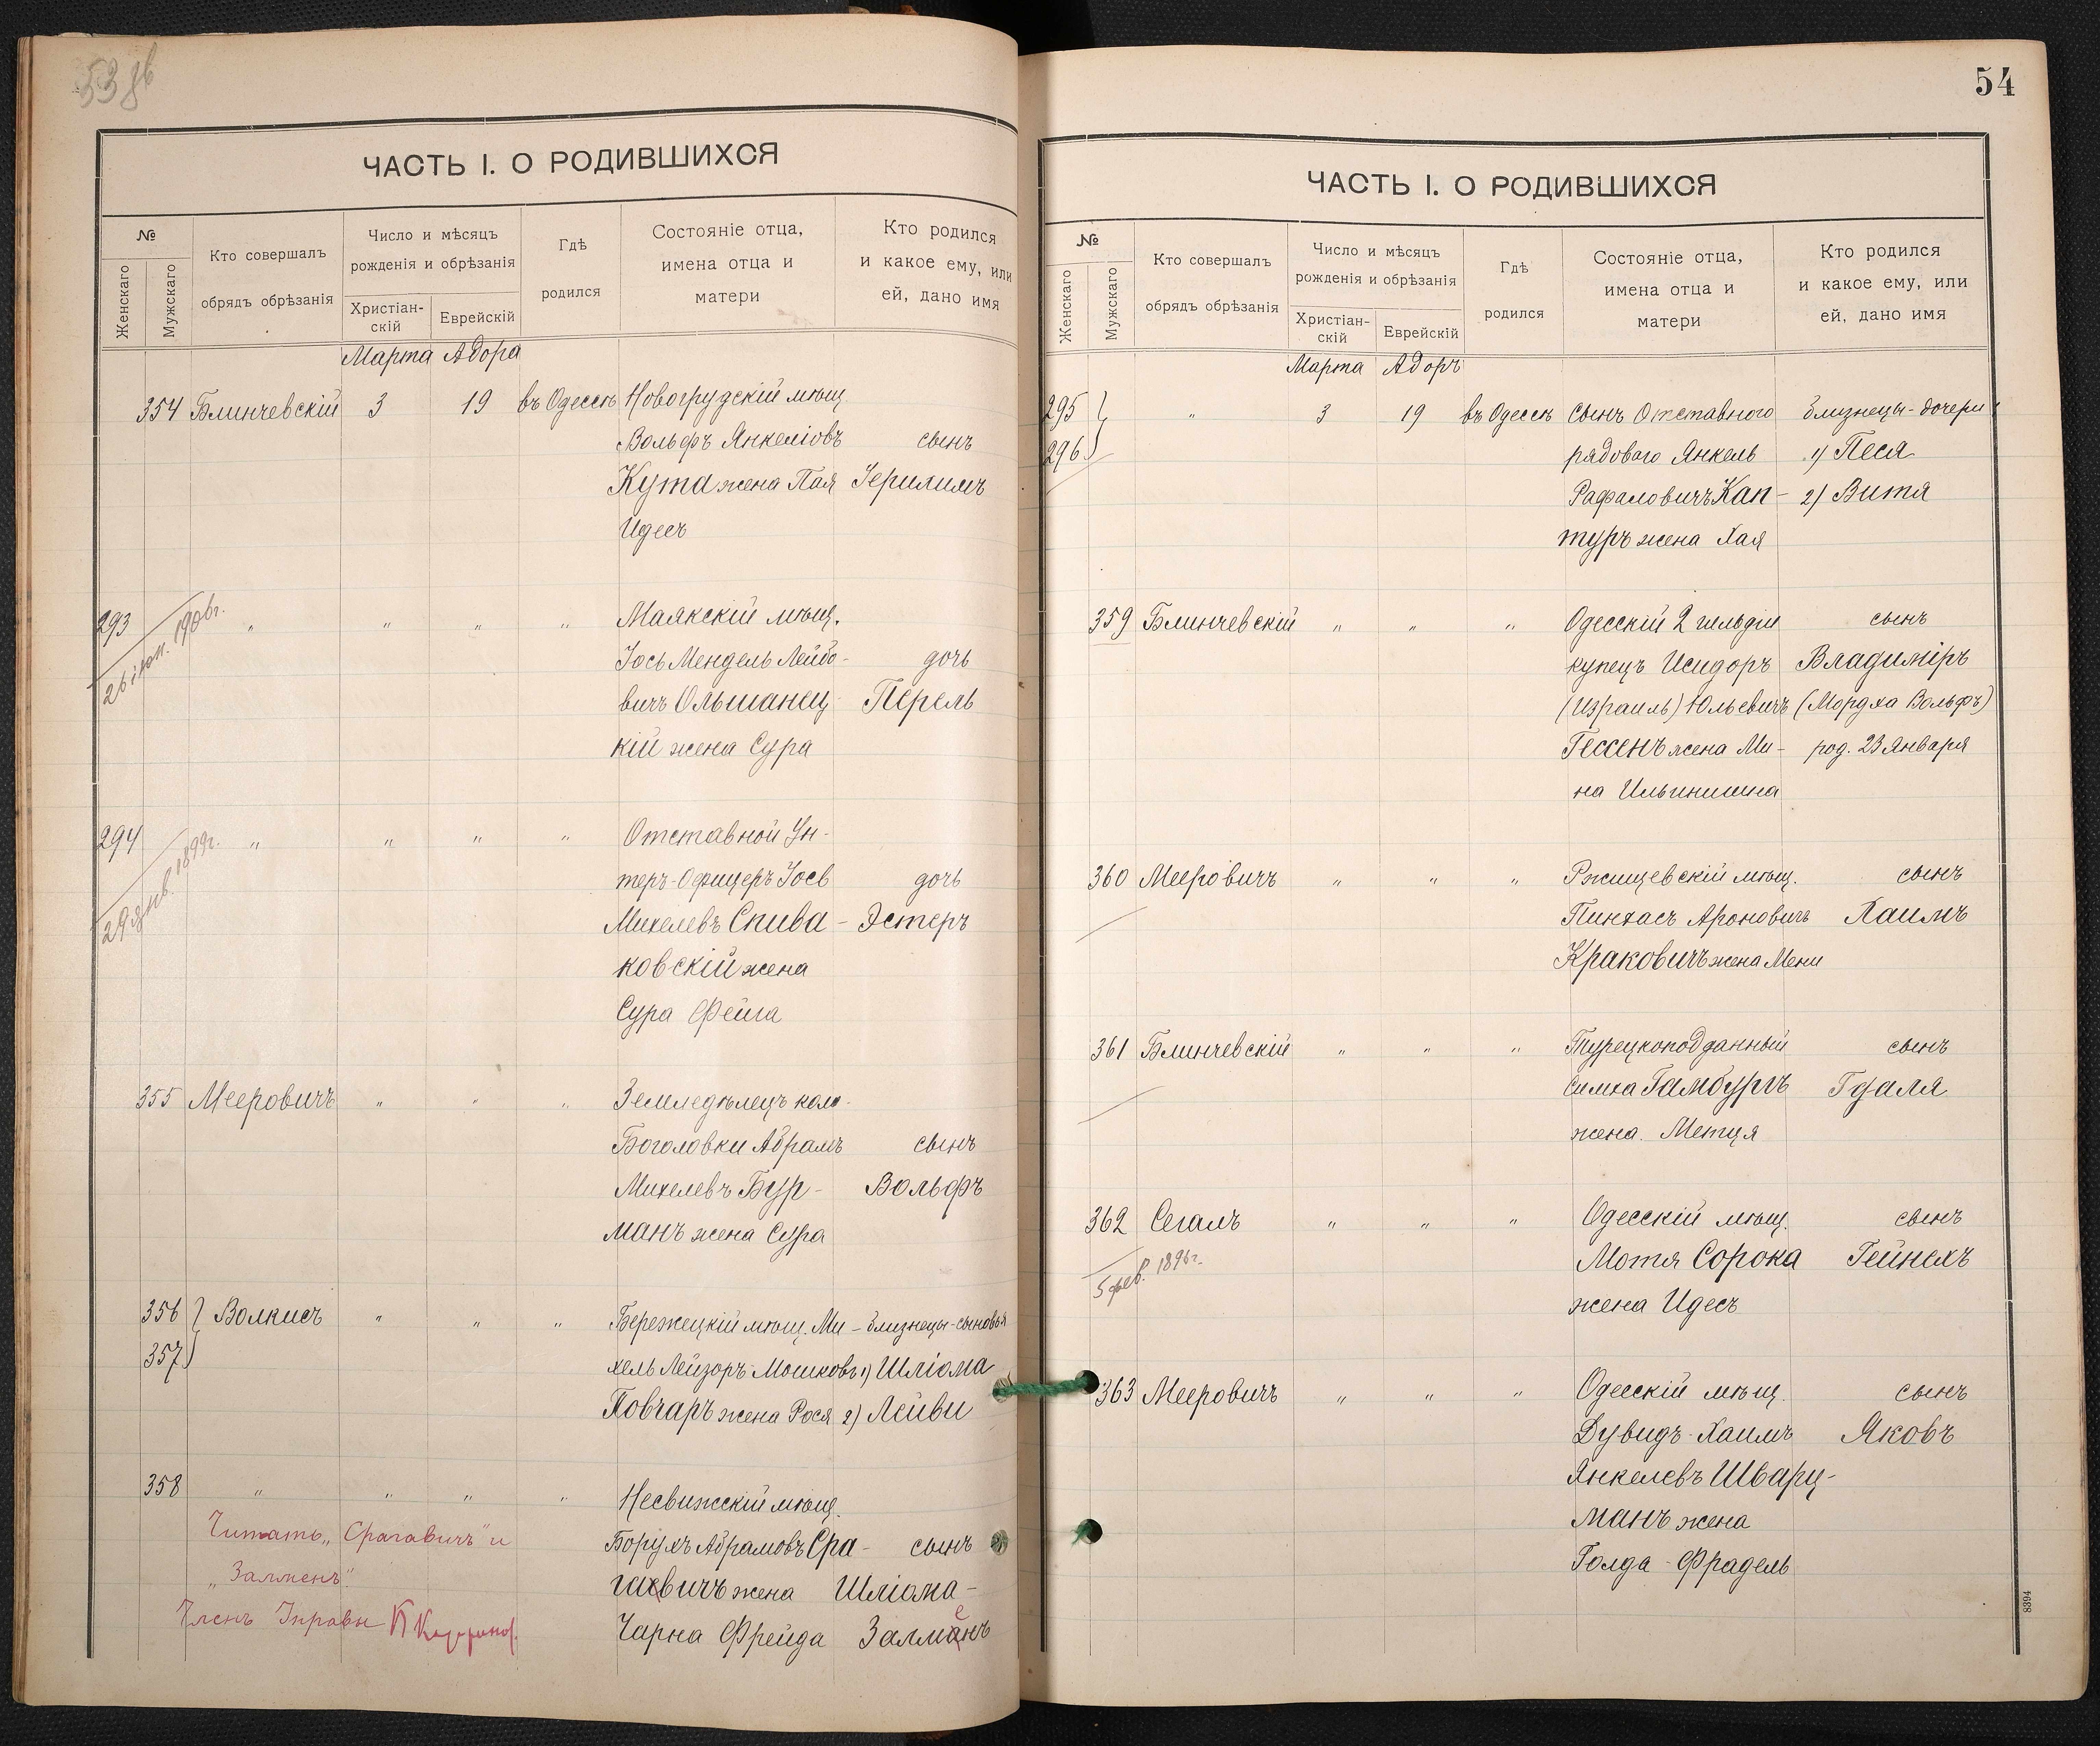 53 об
ЧАСТЬ I. О РОДИВШИХСЯ
№
Женскаго
Мужскаго
Кто совершалъ
обрядъ обрѣзанія
Число и мѣсяцъ
рожденія и обрѣзанія
Христіан-
скій
Еврейскій
Гдѣ
родился
Состояніе отца,
имена отца и
матери
Кто родился
и какое ему, или
ей, дано имя
Марта Адора
354 Блинчевскій 3 19 въ Одессѣ Новогрудскій мѣщ
Вольфъ Янкеліовъ сынъ
Кута жена Пая
Идесъ
293 " " " " Маякскій мѣщ.
26 іюн. 1906г.
Іось Мендель Лейбо- дочь
вичъ Ольшанец- Перель
кій жена Сура
294 " " " " Отставной Ун-
29 янв. 1899г.
теръ-Офицеръ Іось дочь
Михелевъ Спива- Эстеръ
ковскій жена
Сура Фейга
355 Мееровичъ " " " Земледѣлецъ коло-
Боголовки Абрамъ сынъ
Михелевъ Бур- Вольфъ
манъ жена Сура
356 } Волкисъ " " " Бережецкій мѣщ. Ми- близнецы-сыновья
357 хель Лейзоръ Мошковъ 1) Шліома
Повчаръ жена Рося 2) Лейви
358 " " " " Несвижскій мѣщ.
Читать „Срагавичъ" и
Борухъ Абрамовъ Сра- сынъ
„Залменъ".
гаевичъ жена Шліома-
Членъ Управы
Чарна Фрейда Залманъ
е
54
ЧАСТЬ I. О РОДИВШИХСЯ
№
Женскаго
Мужскаго
Кто совершалъ
обрядъ обрѣзанія
Число и мѣсяцъ
рожденія и обрѣзанія
Христіан-
скій
Еврейскій
Гдѣ
родился
Состояніе отца,
имена отца и
матери
Кто родился
и какое ему, или
ей, дано имя
Марта Адоръ
295 } " 3 19 въ Одессѣ Сынъ Отставного близнецы-дочери
296 рядового Янкель 1) Песя
Рафаловичъ Кап- 2) Витя
туръ жена Хая
359 Блинчевскій " " " Одесскій 2 гильдіи сынъ
купецъ Исидоръ Владиміръ
(Израиль) Юльевичъ (Мордха Вольфъ)
Гессенъ жена Ми- род. 23 Января
на Ильинишна
360 Мееровичъ " " " Ржищевскій мѣщ. сынъ
Пинхасъ Ароновичъ Хаимъ
Краковичъ жена Мени
361 Блинчевскій " " " Турецкоподданный сынъ
Симха Гамбургъ Гдаля
жена Метця
362 Сегалъ " " " Одесскій мѣщ. сынъ
5 фев. 1896г.
Мотя Сорока Гейнехъ
жена Идесъ
363 Мееровичъ " " " Одесскій мѣщ. сынъ
Дувидъ-Хаимъ Яковъ
Янкелевъ Шварц-
манъ жена
Голда-Фрадель
8394